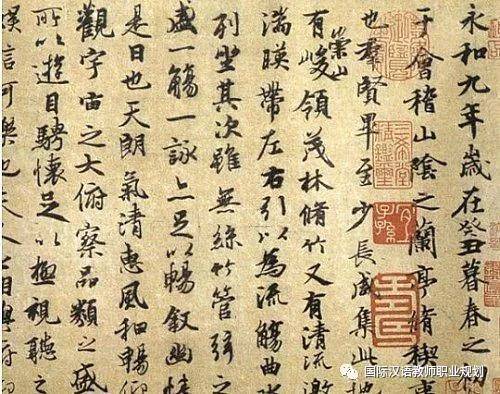 永和九年歲在癸丑暮春之初
于會稽山陰之蘭亭脩稧事
也羣賢畢至少長咸集此地
有崇山峻領茂林脩竹又有清流激
湍暎帶左右引以為流觴曲水
列坐其次雖無絲竹管弦之
盛一觴一詠亦足以暢叙幽情
是日也天朗氣清惠風和暢仰
觀宇宙之大俯察品類之盛
所以遊目騁懷足以極視聽之
娛信可樂也夫人之相與俯仰
三希堂精鑒璽
宜子孫
国际汉语教师职业规划